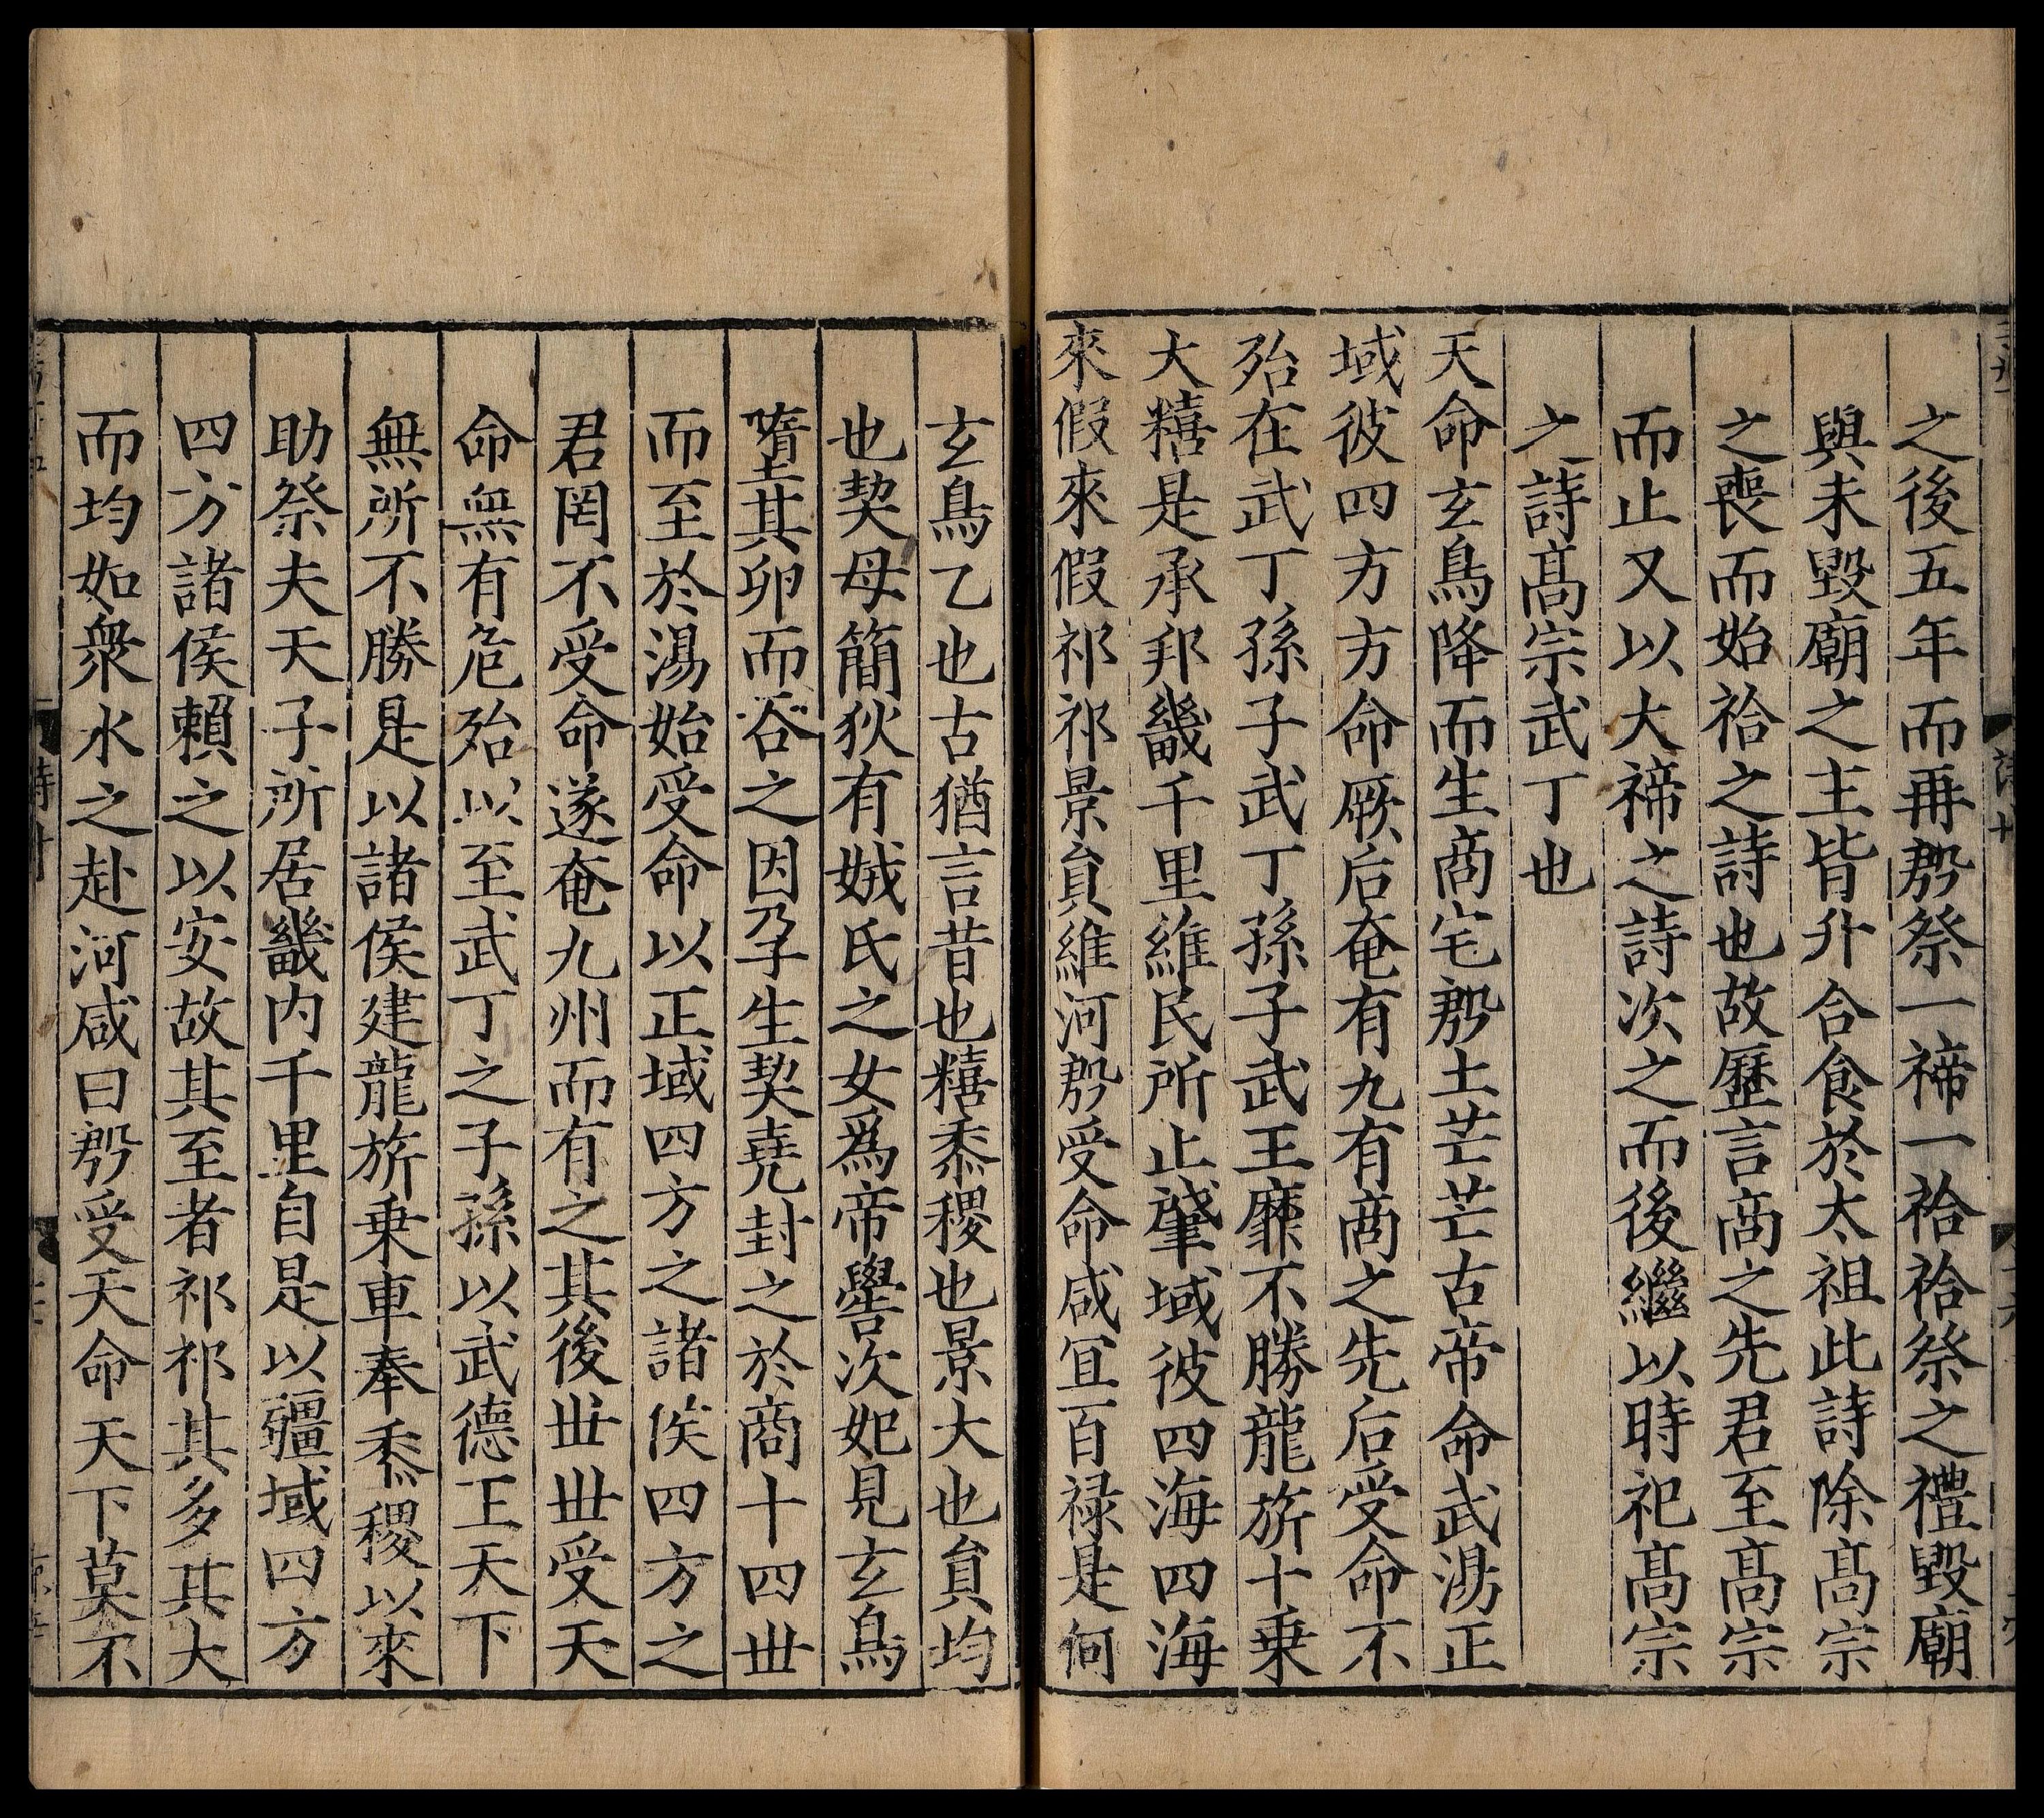 之後五年而再殷祭一禘一祫祫祭之禮毀廟
與未毀廟之主皆升合食於太祖此詩除髙宗
之喪而始祫之詩也故歷言商之先君至髙宗
而止又以大禘之詩次之而後繼以時祀髙宗
之詩髙宗武丁也
天命玄鳥降而生商宅殷土芒芒古帝命武湯正
域彼四方方命厥后奄有九有商之先后受命不
殆在武丁孫子武丁孫子武王靡不勝龍旂十乗
大糦是承邦畿千里維民所止肇域彼四海四海
來假來假祁祁景貟維河殷受命咸冝百禄是何
玄鳥乙也古猶言昔也糦黍稷也景大也貟均
也契母簡狄有娀氏之女爲帝嚳次妃見玄鳥
墮其卵而吞之因孕生契堯封之於商十四丗
而至於湯始受命以正域四方之諸侯四方之
君罔不受命遂奄九州而有之其後丗丗受天
命無有危殆以至武丁之子孫以武德王天下
無所不勝是以諸侯建龍旂乗車奉黍稷以來
助祭夫天子所居畿内千里自是以疆域四方
四方諸侯賴之以安故其至者祁祁其多其大
而均如衆水之赴河咸曰殷受天命天下莫不